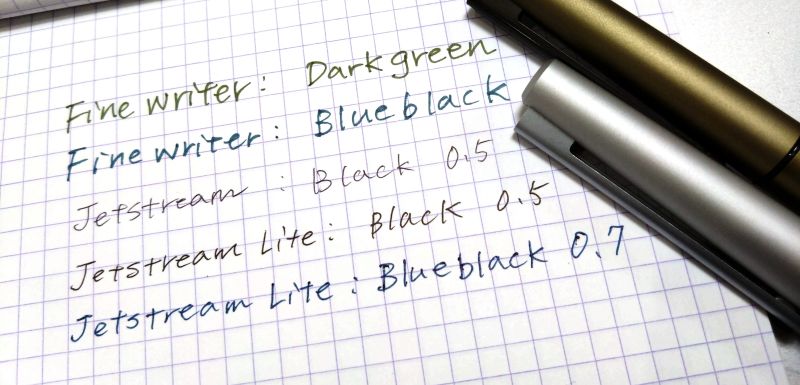 Fine writer : Dark green
Fine writer : Blue black
Jetstream : Black 0.5
Jetstream Lite : Black 0.5
Jetstream Lite : Blueblack 0.7